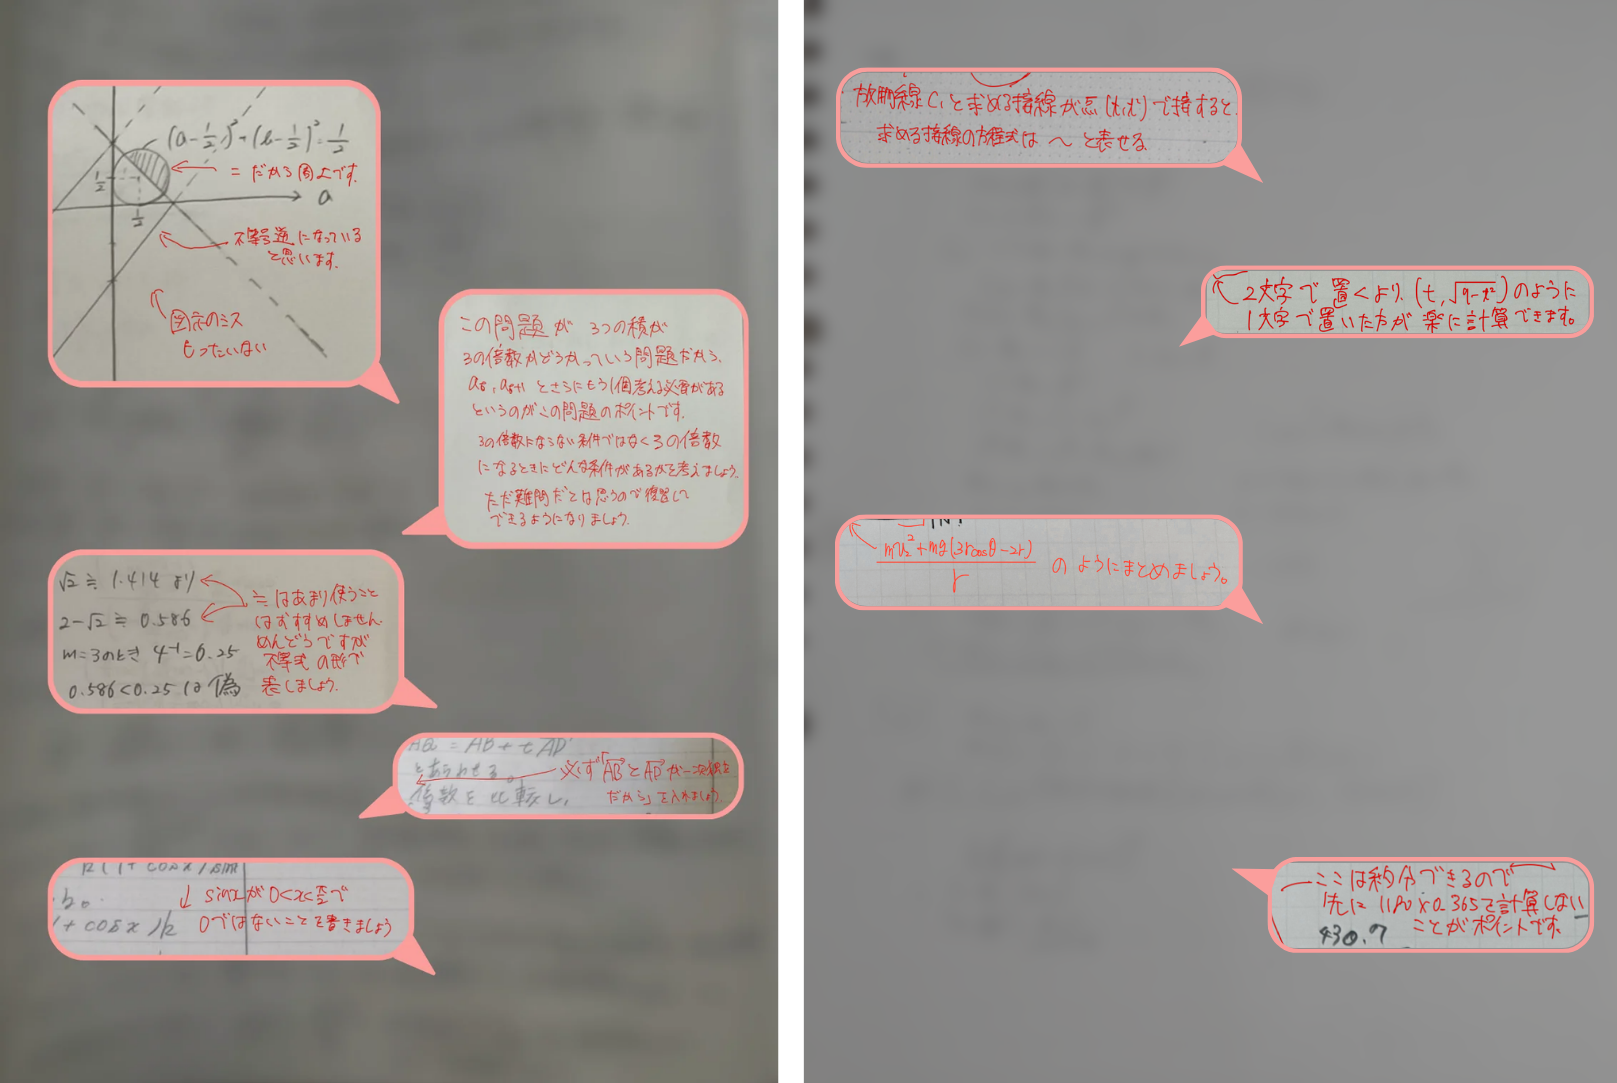 (a-1/2)²+(b-1/2)²=1/2
= だから円周上です。
1/2
a
1/2
不等号逆になっている
と思います。
図示のミス
もったいない
この問題が 3つの積が
3の倍数かどうかっていう問題だから、
とさらにもう1個考える必要がある
というのがこの問題のポイントです。
3の倍数にならない条件ではなく3の倍数
になるときにどんな条件があるかを考えましょう。
ただ難問だとは思うので復習して
できるようになりましょう。
√2≒1.414 より
2-√2≒0.586
m=3のとき 4⁻¹=0.25
0.586<0.25は偽
≒はあまり使うこと
はおすすめしません。
めんどうですが
不等式の形で
表しましょう。
AQ = AB + t AD
とあらわせる。
係数を比較し,
必ず「ABとADが一次独立
だから」を入れましょう。
k(1+cosx)sinx
1+cosx)k
sinxが0<x<πで
0ではないことを書きましょう
放物線C₁と求める接線が点(t,t²)で接すると、
求める接線の方程式は 〜 と表せる
2文字で置くより、(t,√9-t²)のように
1文字で置いた方が楽に計算できます。
mv₀²+mg(3rcosθ-2r)/r のようにまとめましょう。
ここは約分できるので
先に1180×0.365を計算しない
ことがポイントです。
430.7